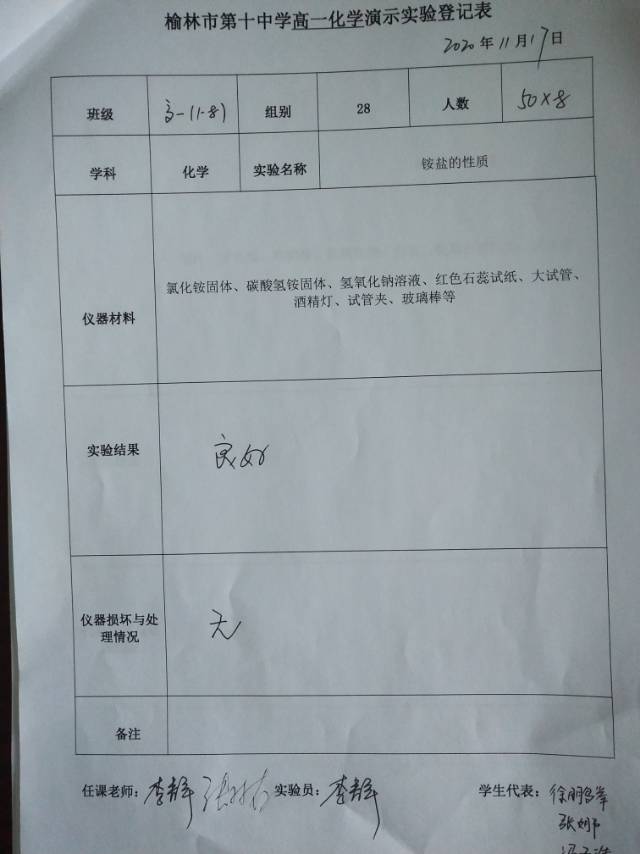 榆林市第十中学高一化学演示实验登记表
2020年11月17日
班级 高一(1-8) 组别 28 人数 50×8
学科 化学 实验名称 铵盐的性质
仪器材料 氯化铵固体、碳酸氢铵固体、氢氧化钠溶液、红色石蕊试纸、大试管、
酒精灯、试管夹、玻璃棒等
实验结果 良好
仪器损坏与处
理情况 无
备注
任课老师：李静 实验员：李静 学生代表：
张娜